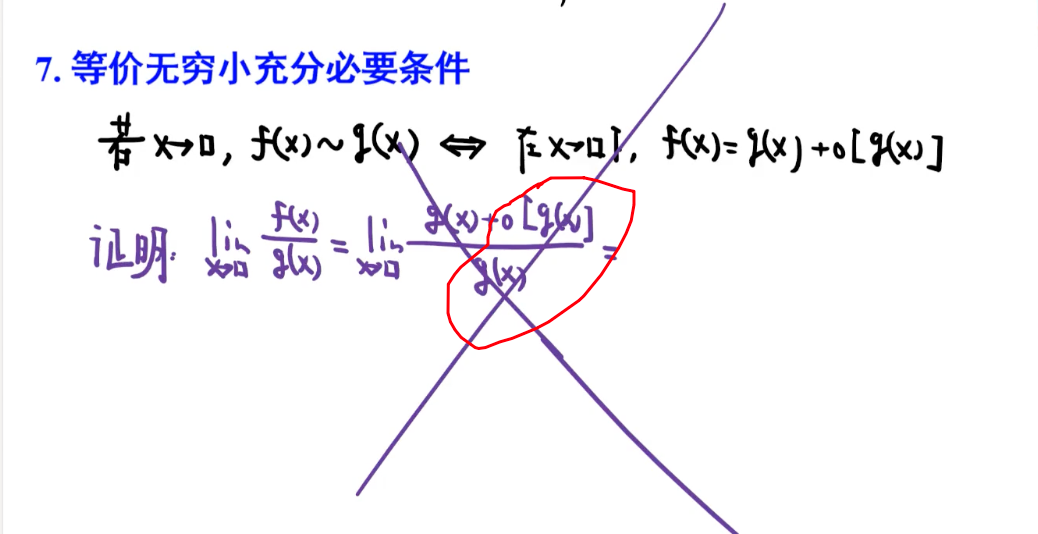 7. 等价无穷小充分必要条件
若 x→□, f(x)~g(x) ⇔ [在 x→□], f(x)=g(x)+o[g(x)]
证明: lim x→□ f(x)/g(x) = lim x→□ g(x)+o[g(x)]/g(x) =